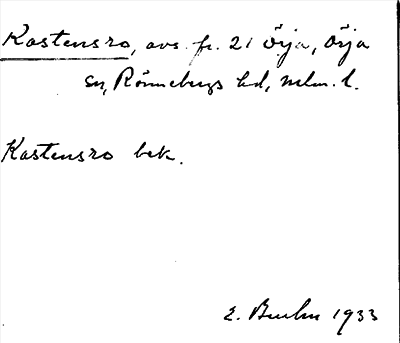 Kastensro, avs. fr. 21 Örja, Örja
sn, Rönnebergs hd, mlm. l.
Kastensro bek.
E. Bruhn 1933